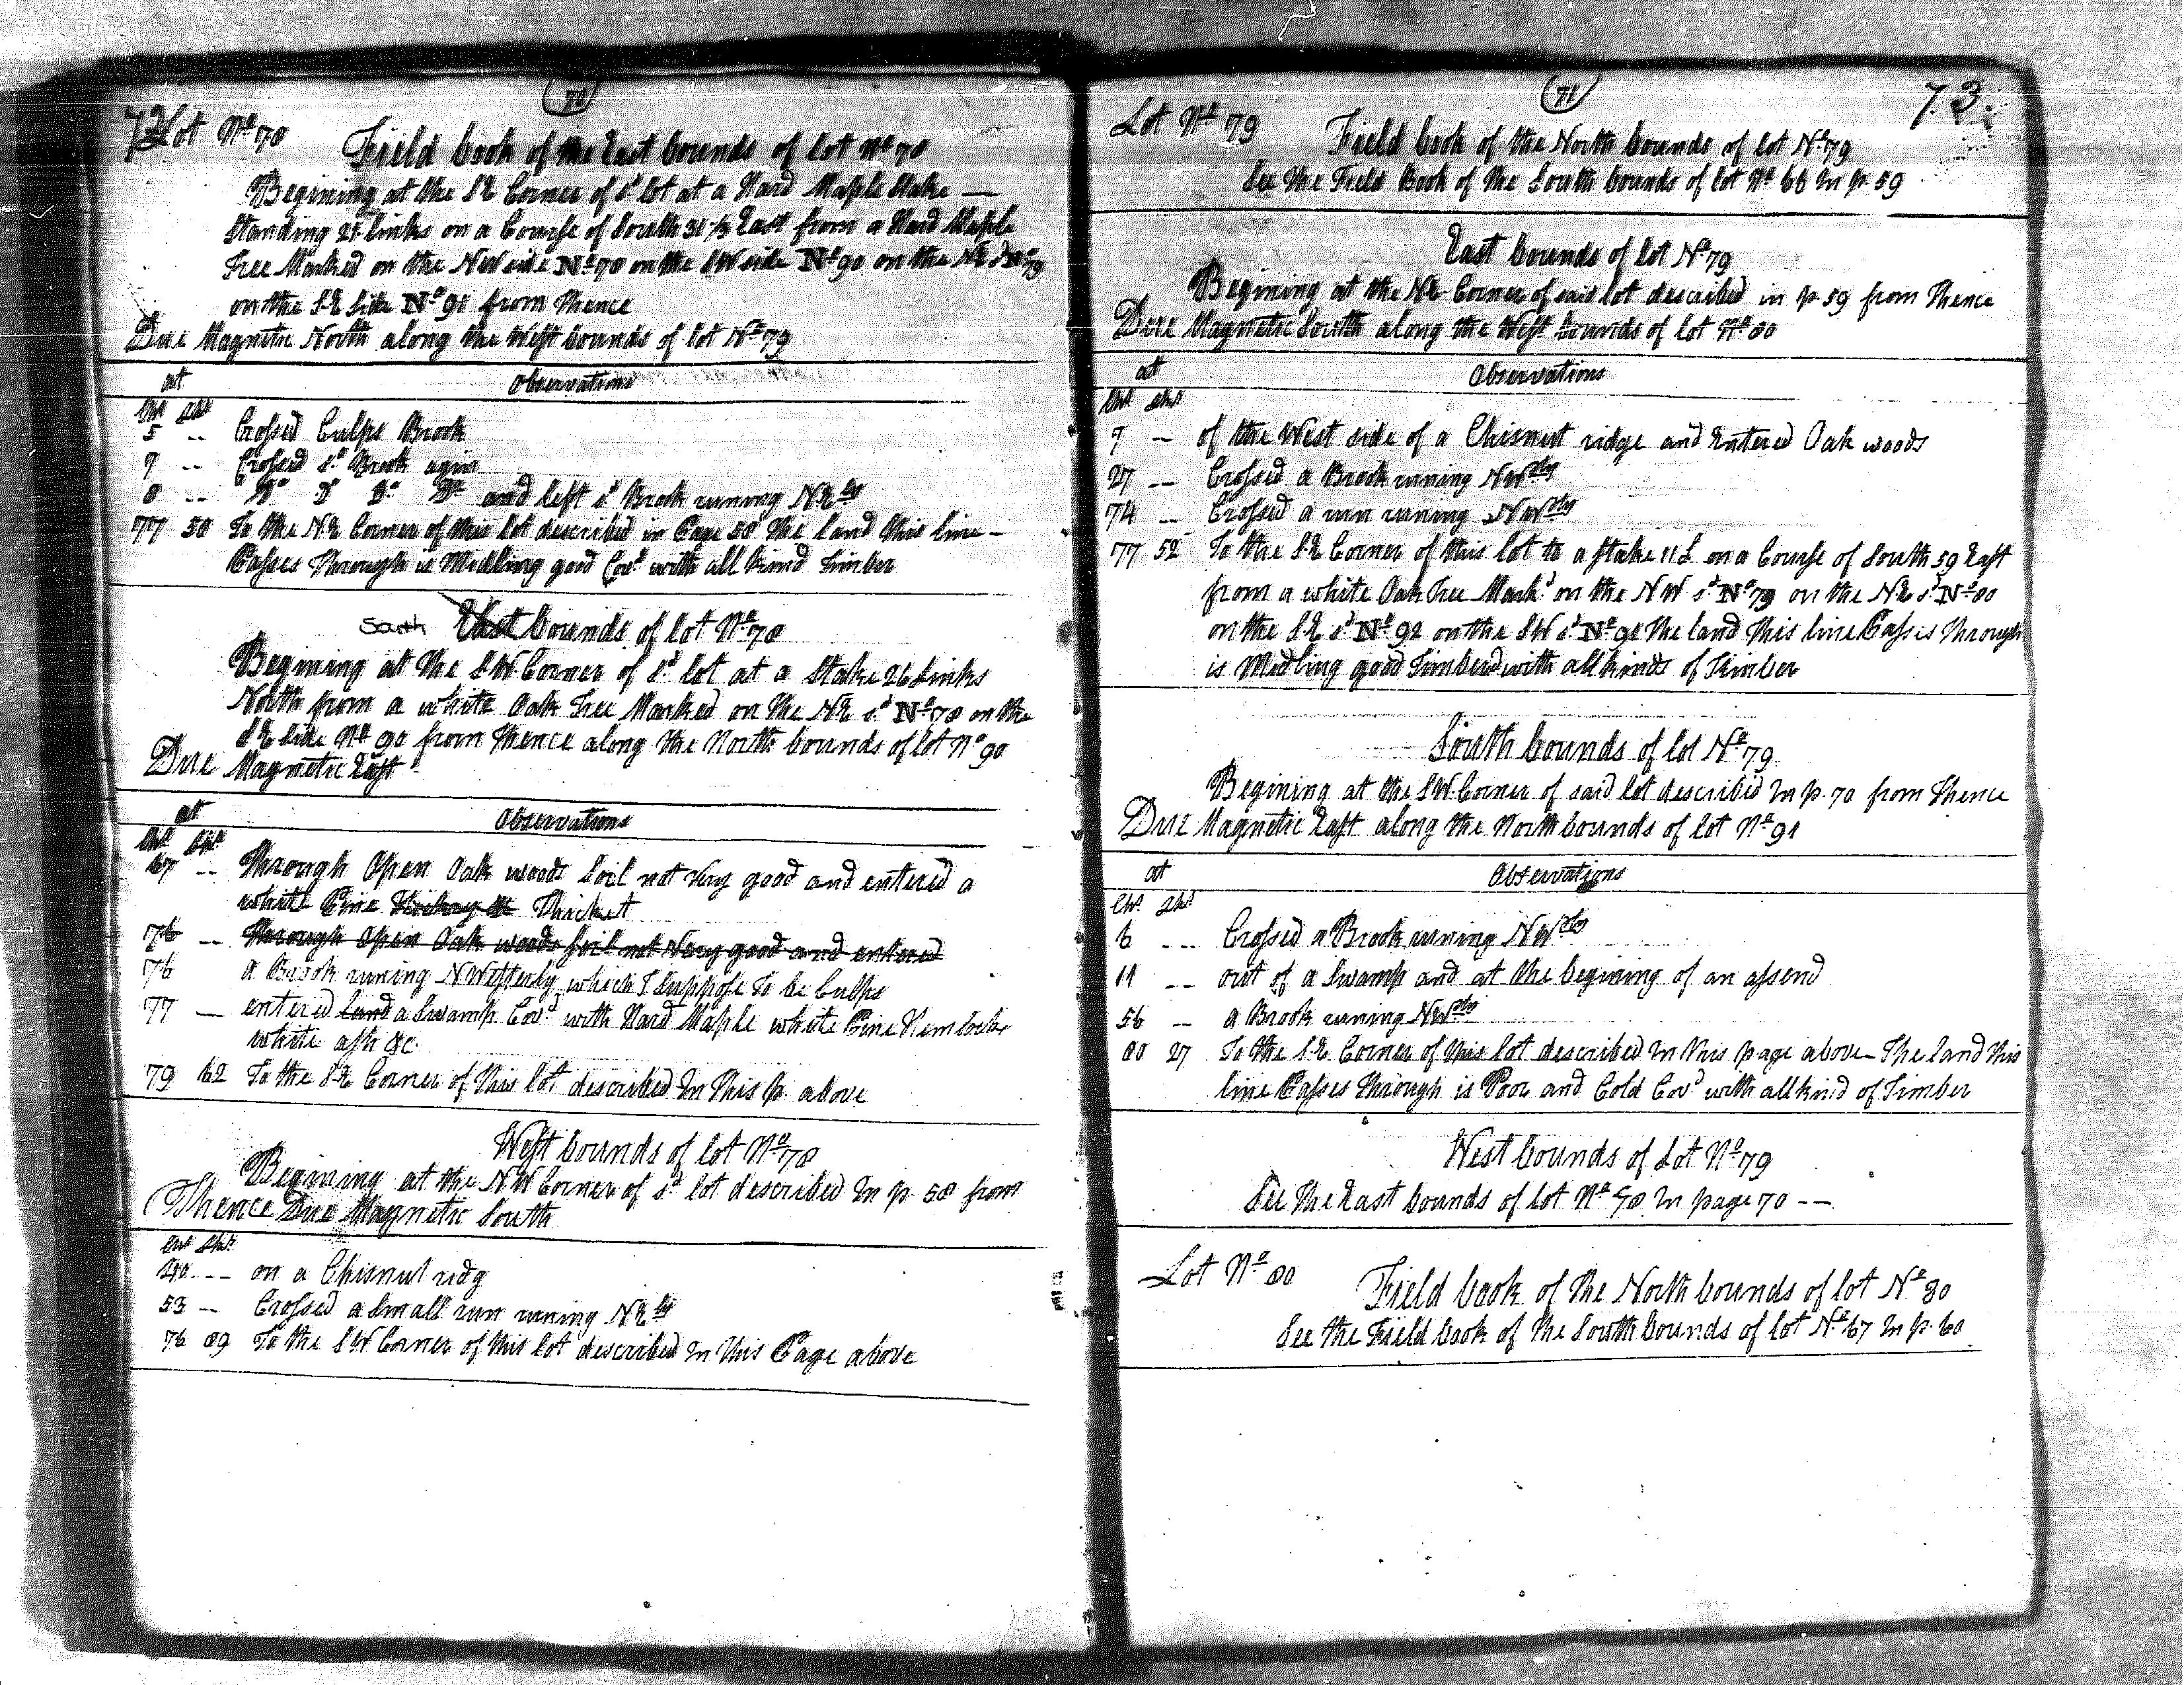 72
70
Lot Nº 78
Field book of the East bounds of lot Nº 78
Begining at the SE Corner of sd lot at a Hard Maple Stake —
Standing 25 links on a Course of South 31 ½ East from a Hard Maple
Tree Marked on the NW side Nº 78 on the SW side Nº 90 on the NE sd Nº 79
on the SE Side Nº 91 from Thence
Due Magnetic North along the West bounds of lot Nº 79
at Observations
Chs Lks
5 -- Crossed Culps Brook
7 -- Crossed sd Brook agin
8 -- Do Do Do Do and left sd Brook runing NEly
77 50 To the NE Corner of this lot described in Page 58 The land this line —
Passes Through is Midling good Covd with all kind Timber
South East bounds of lot Nº 78
Begining at the SW Corner of sd lot at a Stake 26 Links
North from a white Oak Tree Marked on the NE sd Nº 78 on the
SE Side Nº 90 from Thence along the North bounds of lot Nº 90
Due Magnetic East
at Observations
Chs Lks
67 -- Through Open Oak woods Soil not Very good and entered a
white Pine Thicket
76 -- Through Open Oak woods Soil not Very good and entered
76 a Brook runing NWesterly which I Suppose To be Culps
77 — entered land a Swamp Covd with Hard Maple white Pine Hemlocks
white ash &c
79 62 To the SE Corner of this lot described In This P. above
West bounds of lot Nº 78
Begining at the NW Corner of sd lot described In p. 58 from
Thence Due Magnetic South
Chs Lks
20 -- on a Chisnut ridg
53 — Crossed a Small run runing NEly
76 89 To the SW Corner of this lot described In This Page above
71
73
Lot Nº 79
Field book of the North bounds of lot Nº 79
See The Field Book of the South bounds of lot Nº 66 In p. 59
East bounds of lot Nº 79
Begining at the NE Corner of said lot described in p 59 from Thence
Due Magnetic South along the West bounds of lot Nº 80
at Observations
Chs Lks
7 — of the West side of a Chisnut ridge and Entered Oak woods
27 — Crossed a Brook runing NWly
74 -- Crossed a run runing NWly
77 52 To the SE Corner of this lot to a stake 11 L on a Course of South 59 East
from a white Oak Tree Markd on the NW sd Nº 79 on the NE sd Nº 80
on the SE sd Nº 92 on the SW sd Nº 91 The land This line Passes Through
is Midling good Timberd with all kinds of Timber
South bounds of lot Nº 79
Begining at the SW Corner of said lot described In p. 70 from Thence
Due Magnetic East along the North bounds of lot Nº 91
at Observations
Chs Lks
6 -- Crossed a Brook runing NWly
11 -- out of a Swamp and at the begining of an assend
56 -- a Brook runing NWly
80 27 To the SE Corner of this lot described In This page above The land This
line Passes Through is Poor and Cold Covd with all kind of Timber
West bounds of Lot Nº 79
See The East bounds of lot Nº 78 In page 70 --
Lot Nº 80
Field book of the North bounds of lot Nº 80
See the Field book of the South bounds of lot Nº 67 In p. 60